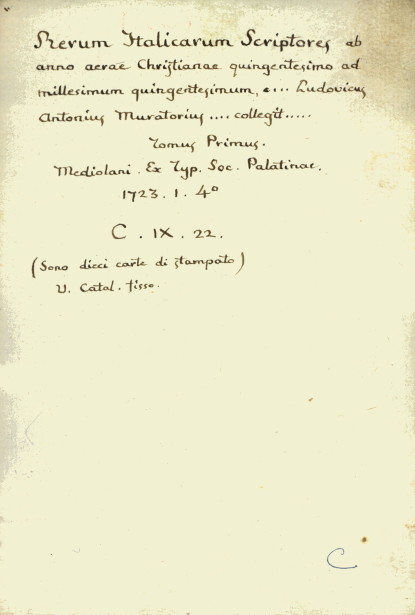 Rerum Italicarum Scriptores ab
anno aerae Christianae quingentesimo ad
millesimum quingentesimum, e... Ludovicus
Antonius Muratorius .... collegit.....
Tomus Primus.
Mediolani. Ex Typ. Soc. Palatinae.
1723. 1. 4º
C. IX. 22.
(Sono dieci carte di stampato)
V. Catal. fisso.
C